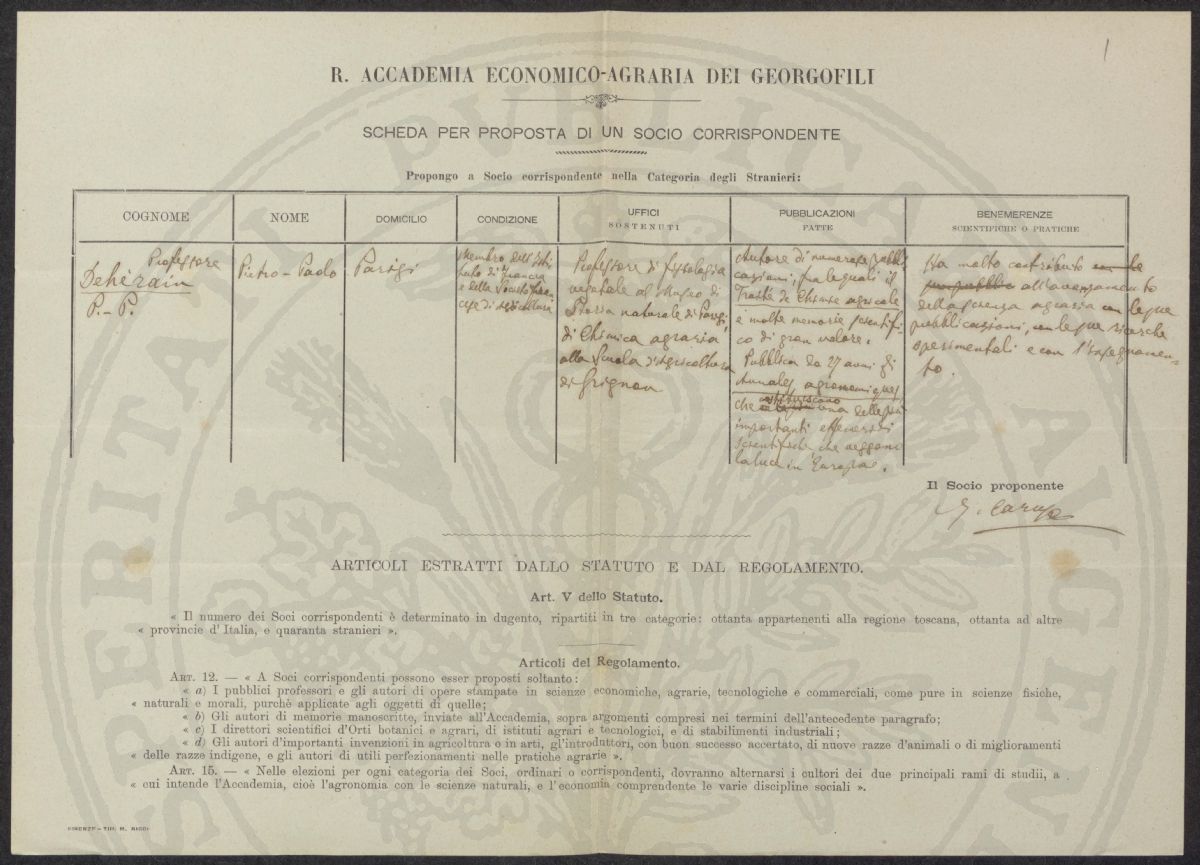 1
R. ACCADEMIA ECONOMICO-AGRARIA DEI GEORGOFILI
SCHEDA PER PROPOSTA DI UN SOCIO CORRISPONDENTE
Propongo a Socio corrispondente nella Categoria degli Stranieri:
COGNOME
NOME
DOMICILIO
CONDIZIONE
UFFICI
SOSTENUTI
PUBBLICAZIONI
FATTE
BENEMERENZE
SCIENTIFICHE O PRATICHE
Professore
Dehérain
P.-P.
Pietro-Paolo
Parigi
Membro dell'Isti
tuto di Francia
e della Società fran
cese di agricoltura
Professore di fisiologia
vegetale al Museo di
Storia naturale di Parigi
di Chimica agraria
alla Scuola d'Agricoltura
di Grignon
Autore di numerose pubbli
cazioni, fra le quali il
Traité de Chimie agricole
e molte memorie scientifi
co di gran valore.
Pubblica da 27 anni gli
Annales agronomiques
che costituiscono una delle più
importanti effemeridi
scientifiche che veggano
la luce in Europa.
Ha molto contributo con le
pubbliche all'avanzamento
della scienza agraria con le sue
pubblicazioni, con le sue ricerche
sperimentali e con l'insegnamen-
to.
Il Socio proponente
G. Caruso
ARTICOLI ESTRATTI DALLO STATUTO E DAL REGOLAMENTO.
Art. V dello Statuto.
« Il numero dei Soci corrispondenti è determinato in dugento, ripartiti in tre categorie: ottanta appartenenti alla regione toscana, ottanta ad altre
« provincie d'Italia, e quaranta stranieri ».
Articoli del Regolamento.
ART. 12. — « A Soci corrispondenti possono esser proposti soltanto:
« a) I pubblici professori e gli autori di opere stampate in scienze economiche, agrarie, tecnologiche e commerciali, come pure in scienze fisiche,
« naturali e morali, purchè applicate agli oggetti di quelle;
« b) Gli autori di memorie manoscritte, inviate all'Accademia, sopra argomenti compresi nei termini dell'antecedente paragrafo;
« c) I direttori scientifici d'Orti botanici e agrari, di istituti agrari e tecnologici, e di stabilimenti industriali;
« d) Gli autori d'importanti invenzioni in agricoltura o in arti, gl'introduttori, con buon successo accertato, di nuove razze d'animali o di miglioramenti
« delle razze indigene, e gli autori di utili perfezionamenti nelle pratiche agrarie ».
ART. 15. — « Nelle elezioni per ogni categoria dei Soci, ordinari o corrispondenti, dovranno alternarsi i cultori dei due principali rami di studii, a
« cui intende l'Accademia, cioè l'agronomia con le scienze naturali, e l'economia comprendente le varie discipline sociali ».
FIRENZE - TIP. M. RICCI